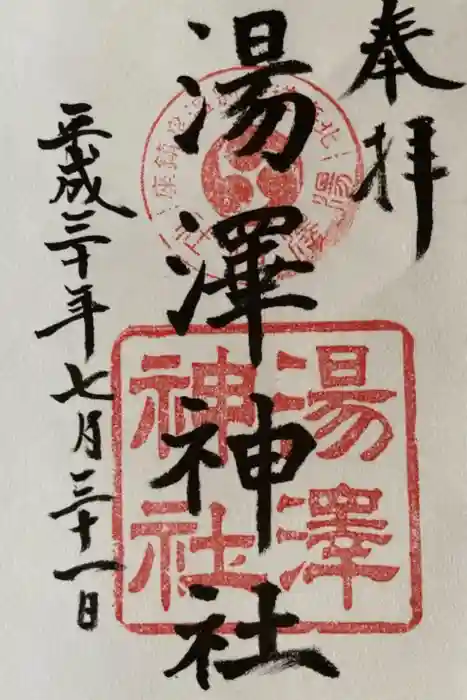 奉拝
湯澤神社
平成三十年七月三十一日
湯澤
神社